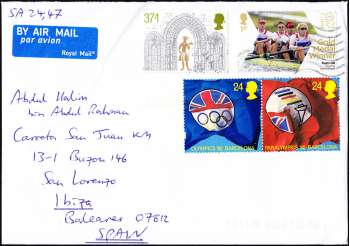 SA 24,47
BY AIR MAIL
par avion
Royal Mail
37½
1st
Gold
Medal
Winner
24
24
OLYMPICS '92 BARCELONA
PARALYMPICS '92 BARCELONA
Abdul Halim
bin Abdul Rahman
Carreta San Juan KM
13-1 Buzon 146
San Lorenzo
Ibiza
Baleares 07812
SPAIN